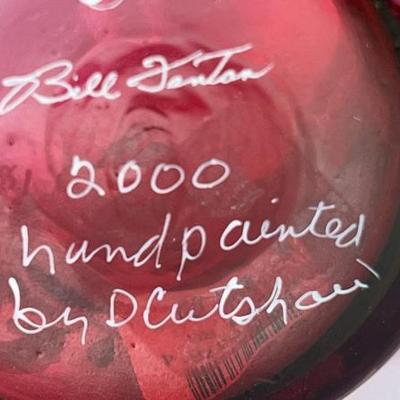 Bill Fenton
2000
handpainted
by D Cutshaw